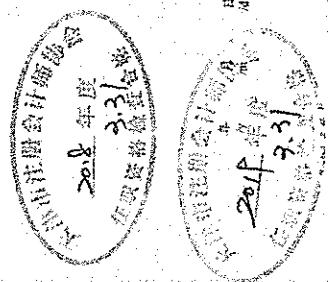 天津市注册会计师协会
2018 年度
3.31
任职资格检查合格
注册会计师
2019 年度
3.31
任职资格检查合格